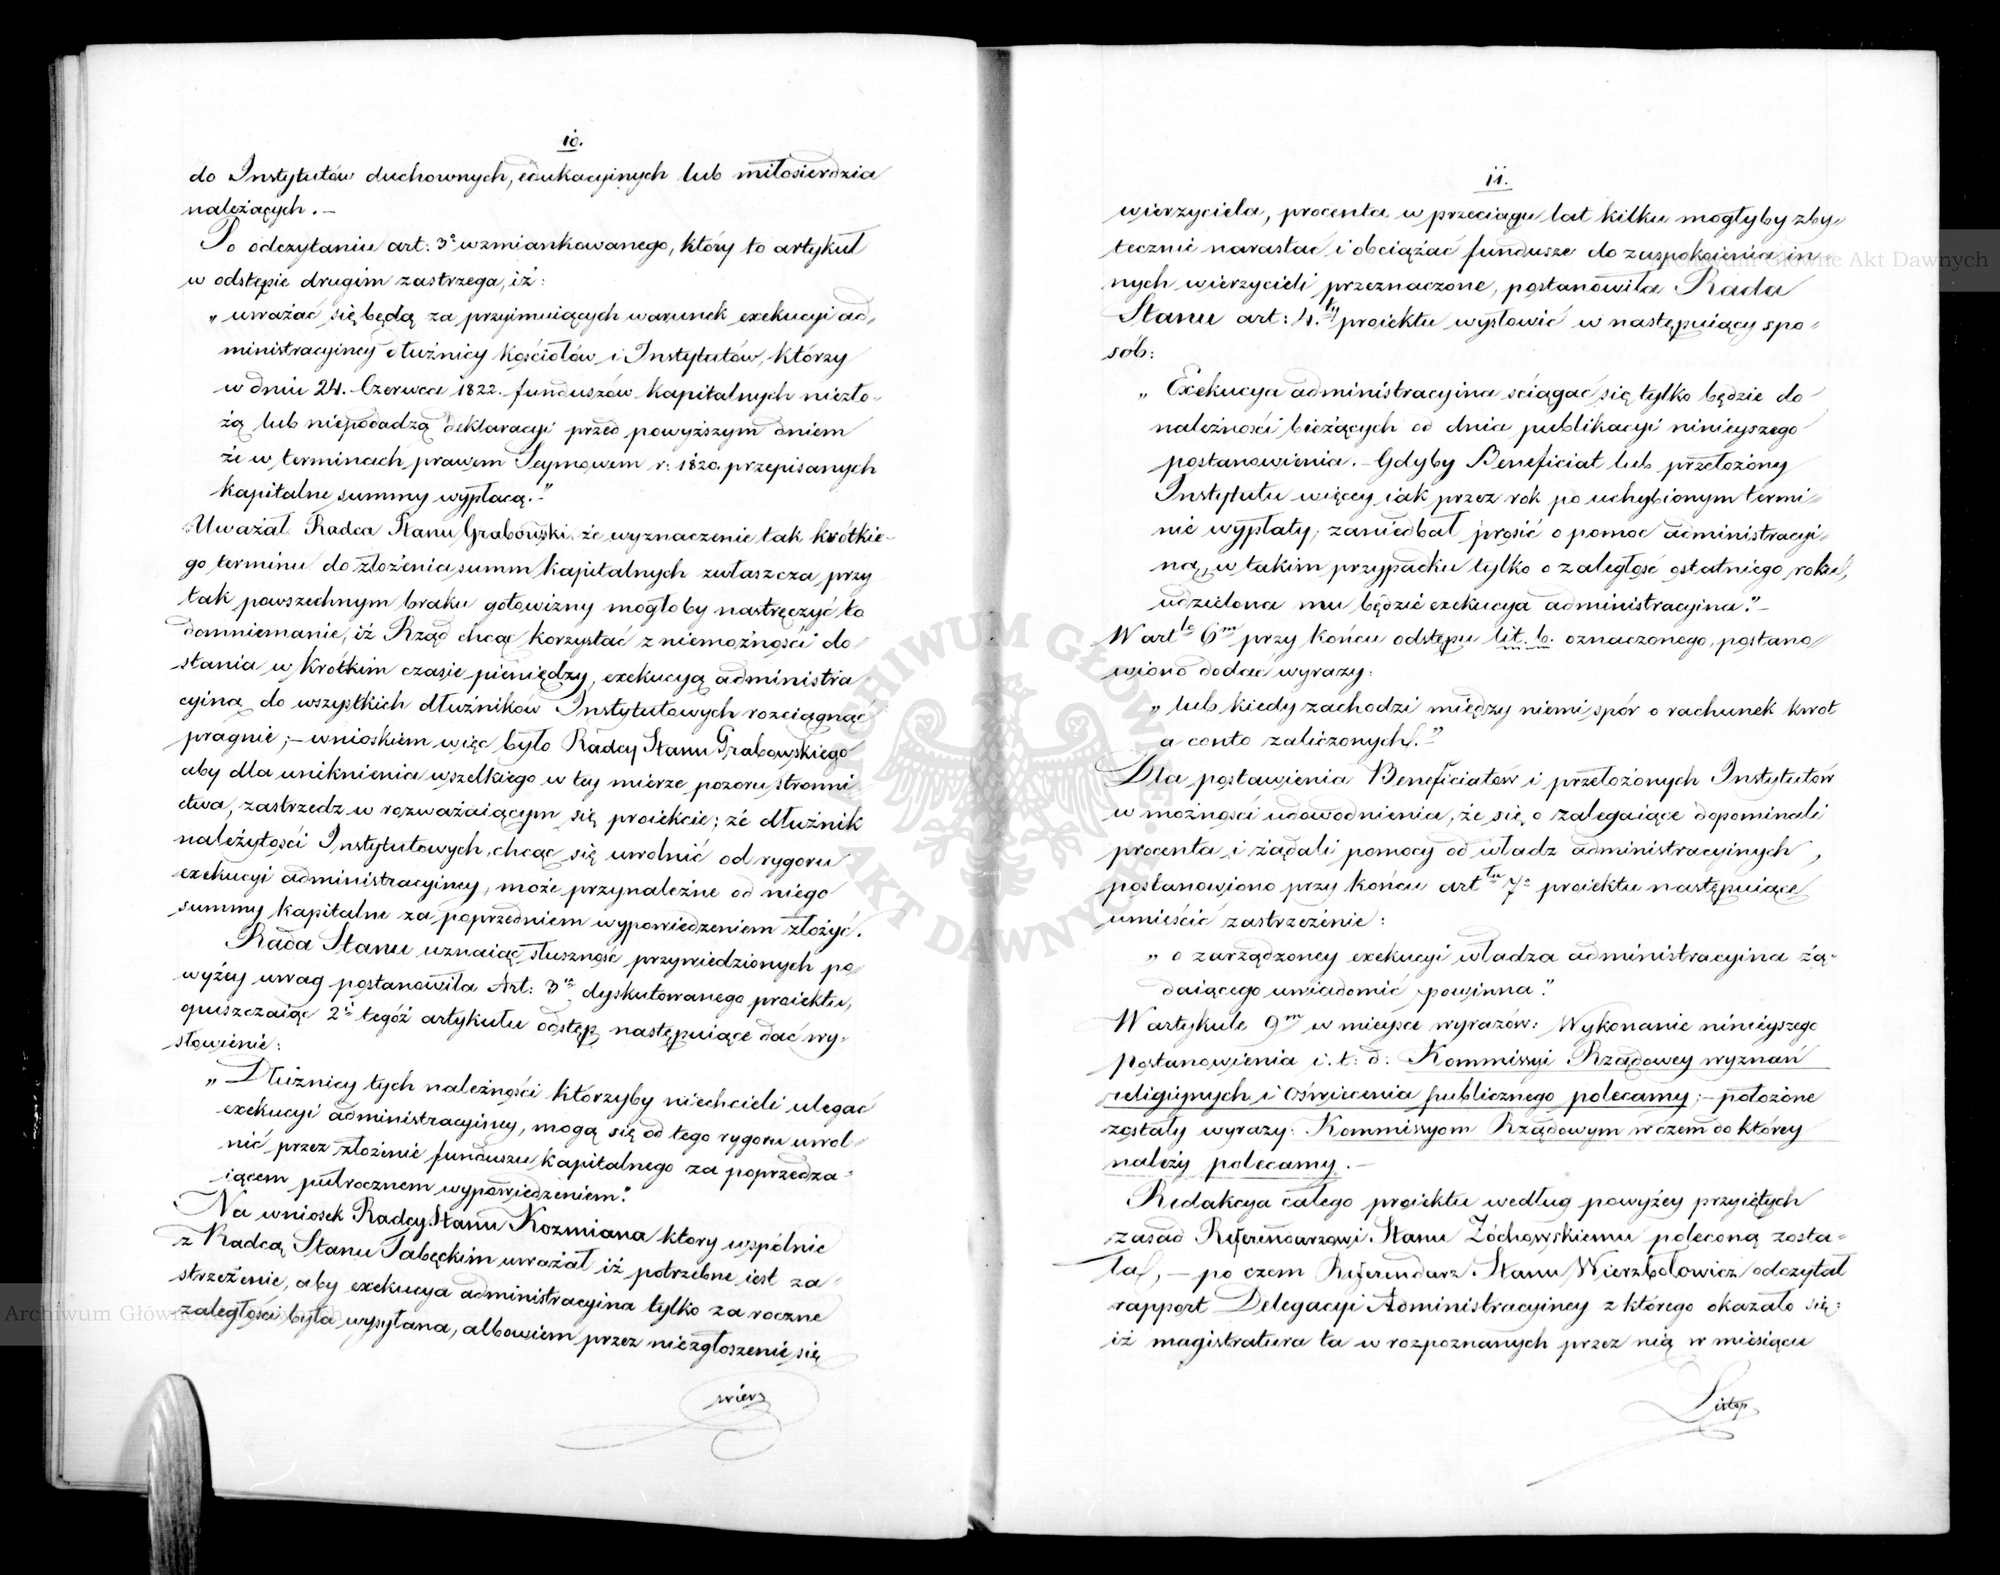 10.
do Instytutów duchownych, edukacyinych lub miłosierdzia
należących. —
Po odczytaniu art: 3º wzmiankowanego, który to artykuł
w odstępie drugim zastrzega, iż:
„uważać się będą za przyimuiących warunek exekucyi ad„
ministracyiney dłużnicy kościołów i Instytutów, którzy
w dniu 24. Czerwca 1822. funduszów kapitalnych niezło„
żą lub niepodadzą deklaracyi przed powyższym dniem
że w terminach prawem Seymowem r: 1820. przepisanych
kapitalne summy wypłacą."
Uważał Radca Stanu Grabowski, że wyznaczenie tak krótkie„
go terminu do złożenia summ kapitalnych zwłaszcza przy
tak powszechnym braku gotowizny mogłoby nastręczyć to
domniemanie, iż Rząd chcąc korzystać z niemożności do„
stania w krótkim czasie pieniędzy, exekucyą administra„
cyiną do wszystkich dłużników Instytutowych rozciągnąć
pragnie; — wnioskiem więc było Radcy Stanu Grabowskiego
aby dla uniknienia wszelkiego w tey mierze pozoru stronni„
ctwa, zastrzedz w rozważaiącym się proiekcie; że dłużnik
należytości Instytutowych, chcąc się uwolnić od rygoru
exekucyi administracyiney, może przynależne od niego
summy kapitalne za poprzedniem wypowiedzeniem złożyć.
Rada Stanu uznaiąc słuszność przywiedzionych po„
wyżey uwag postanowiła Art: 3ci dyskutowanego proiektu,
opuszczaiąc 2i tegóż artykułu odstęp następuiące dać wy„
słowienie:
„Dłużnicy tych należności którzyby niechcieli ulegać
exekucyi administracyiney, mogą się od tego rygoru uwol„
nić przez złożenie funduszu kapitalnego za poprzedza„
iącem półrocznem wypowiedzeniem."
Na wniosek Radcy Stanu Kozmiana który wspólnie
z Radcą Stanu Tabęckim uważał iż potrzebne iest za„
strzeżenie, aby exekucya administracyina tylko za roczne
zaległości była wysyłana, albowiem przez niezgłoszenie się
wierz
11.
wierzyciela, procenta w przeciągu lat kilku mogłyby zby„
tecznie narastać i obciążać fundusze do zaspokoienia in„
nych wierzycieli przeznaczone, postanowiła Rada
Stanu art: 4.ty proiektu wysłowić w następuiący spo„
sób:
„Exekucya administracyina sciągać się tylko będzie do
należności bieżących od dnia publikacyi ninieyszego
postanowienia. — Gdyby Beneficiat lub przełożony
Instytutu więcey iak przez rok po uchybionym termi„
nie wypłaty, zaniedbał prosić o pomoc administracyi„
ną, w takim przypadku tylko o zaległość ostatniego roku,
udzielona mu będzie exekucya administracyina." —
W artle 6m przy końcu odstępu lit. b. oznaczonego, postano„
wiono dodać wyrazy:
„lub kiedy zachodzi między niemi spór o rachunek kwot
a conto zaliczonych."
Dla postawienia Beneficiatów i przełożonych Instytutów
w możności udowodnienia, że się o zalegaiące dopominali
procenta i żądali pomocy od władz administracyinych,
postanowiono przy końcu artłu 7º proiektu następuiące
umieścić zastrzeżenie:
„o zarządzoney exekucyi władza administracyina żą„
daiącego uwiadomić powinna."
W artykule 9m w mieysce wyrazów: Wykonanie ninieyszego
postanowienia i. t. d. Kommissyi Rządowey wyznań
religiynych i Oświecenia publicznego polecamy; — położone
zostały wyrazy: Kommissyom Rządowym w czem do którey
należy polecamy. —
Redakcya całego proiektu według powyżey przyiętych
zasad Referendarzowi Stanu Zóchowskiemu poleconą zosta„
ła, — po czem Referendarz Stanu Wierzbołowicz odczytał
rapport Delegacyi Administracyiney z którego okazało się:
iż magistratura ta w rozpoznanych przez nią w miesiącu
Listop
ARCHIWUM GŁÓWNE AKT DAWNYCH
Archiwum Główne Akt Dawnych
Archiwum Główne Akt Dawnych